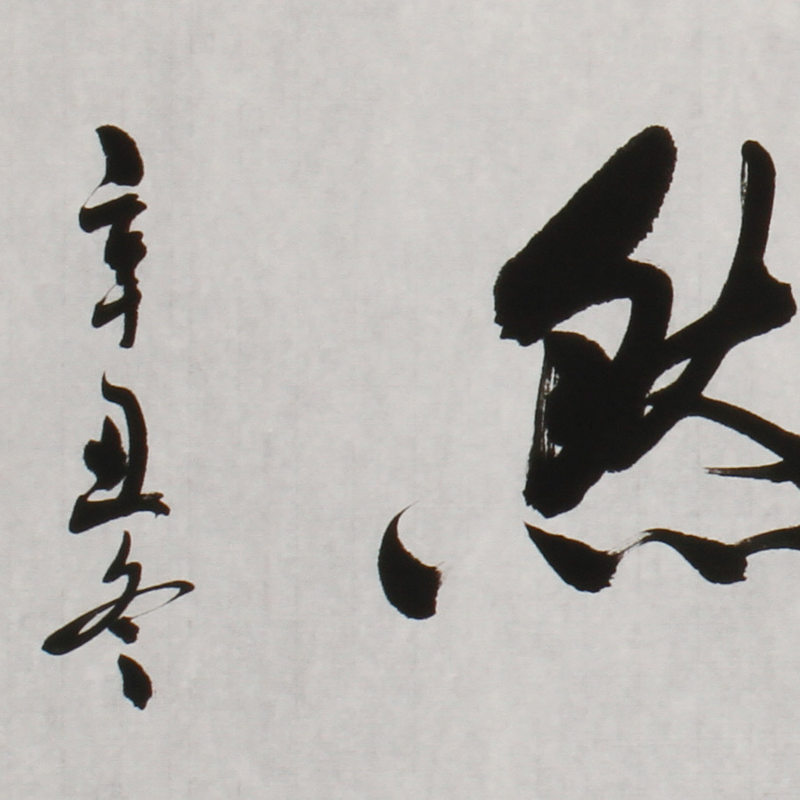 然
辛丑冬